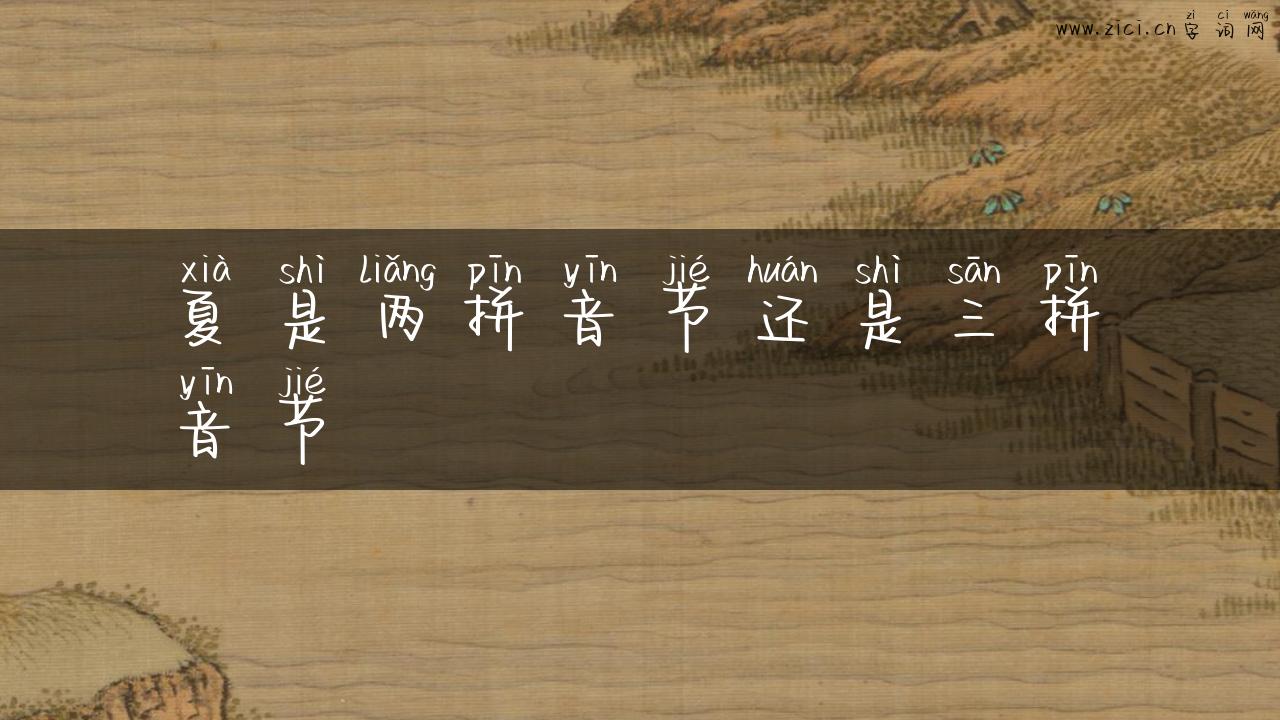 zì cí wǎng
www.zici.cn字词网
xià shì liǎng pīn yīn jié huán shì sān pīn
夏是两拼音节还是三拼
yīn jié
音节